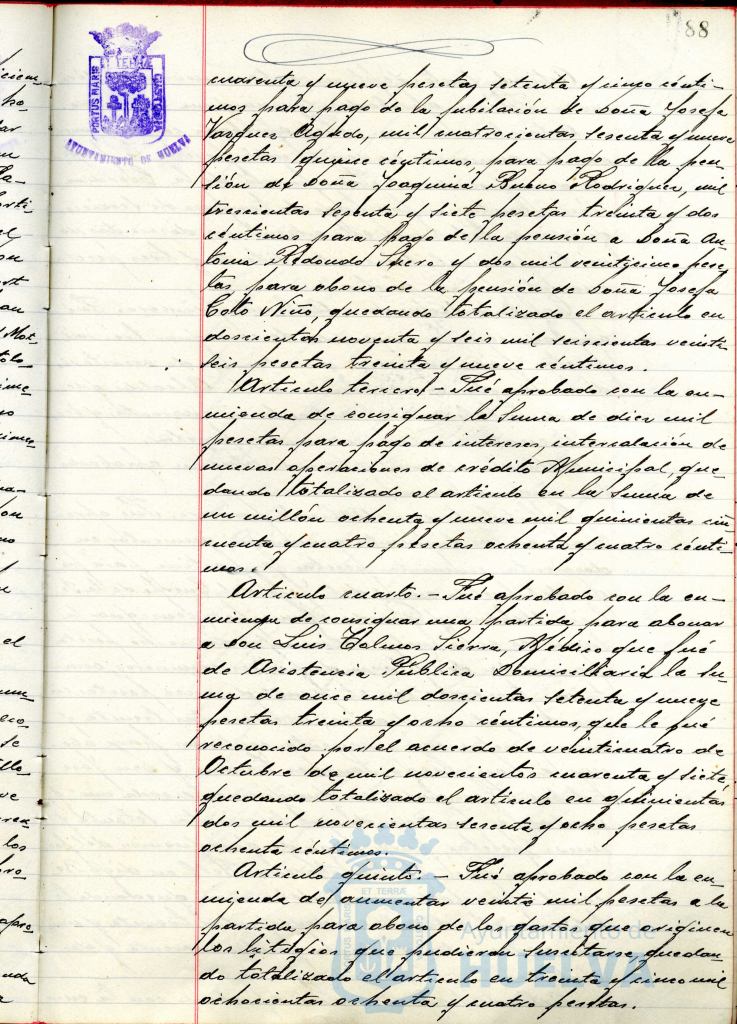 88
PORTUS MARIS ET TERRÆ CUSTODIA
AYUNTAMIENTO DE HUELVA
cuarenta y nueve pesetas setenta y cinco cénti-
mos para pago de la jubilación de Doña Josefa
Vazquez Agudo, mil cuatrocientas sesenta y nueve
pesetas quince céntimos, para pago de la pen-
sión de Doña Joaquina Bueno Rodriguez, mil
trescientas sesenta y siete pesetas treinta y dos
céntimos para pago de la pensión a Doña An-
tonia Redondo Suero y dos mil veinticinco pese-
tas, para abono de la pensión de Doña Josefa
Cotto Niño, quedando totalizado el articulo en
doscientas noventa y seis mil seiscientas veinti-
seis pesetas treinta y nueve céntimos.
Articulo tercero.- Fué aprobado con la en-
mienda de consignar la suma de diez mil
pesetas para pago de intereses, intercalación de
nuevas operaciones de crédito Municipal, que-
dando totalizado el articulo en la suma de
un millón ochenta y nueve mil quinientas cin-
cuenta y cuatro pesetas ochenta y cuatro cénti-
mos.
Articulo cuarto.- Fué aprobado con la en-
mienda de consignar una partida para abonar
a Don Luis Sierra, Médico que fué
de Asistencia Pública Domiciliaria la su-
ma de once mil doscientas setenta y nueve
pesetas treinta y ocho céntimos, que le fué
reconocido por el acuerdo de veinticuatro de
Octubre de mil novecientos cuarenta y siete,
quedando totalizado el articulo en quinientas
dos mil novecientas sesenta y ocho pesetas
ochenta céntimos.
Articulo quinto.- Fué aprobado con la en-
mienda de aumentar veinte mil pesetas a la
partida para abono de los gastos que originen
los litigios que pudieran suscitarse, quedan-
do totalizado el articulo en treinta y cinco mil
ochocientas ochenta y cuatro pesetas.
Ayuntamiento de
HUELVA